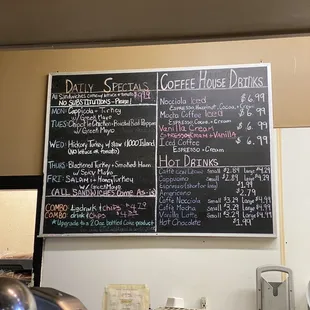 DAILY SPECTALS
All Sandwiches come w/ lettuce & tomato $9.19
NO SUBSTITUTIONS - Please!
MON: Cappicola + Turkey
w/ Green Mayo
TUES: Chicken + Bacon Roasted Red Pepper
w/ Green Mayo
WED: Hickory Turkey w/ Slaw (1000 Island)
(No lettuce or tomato on this)
THURS: Blackened Turkey + Smoked Ham
w/ Spicy Mayo
FRI: SALAMI + Honey Turkey
w/ Green Mayo
(ALL SANDWICHES Come AS-is)
COMBO chips
COMBO drink chips
*Upgrade to a 20oz bottled Coke product
COFFEE HOUSE DRINKS
Nocciola Iced $6.99
Espresso Hazelnut Cocoa + Cream
Mocha Coffee Iced $6.99
Espresso + Cocoa + Cream
Vanilla Cream $6.99
Espresso + Cream + Vanilla
Iced Coffee $6.99
Espresso + Cream
HOT DRINKS
Caffe Small $2.89 Large
Cappucino Small $3.29 Large $4.99
Espresso (short or long) $1.99
Americano $2.79
Caffe Latte Small $3.29 Large $4.99
Caffe Mocha Small $3.29 Large $4.99
Vanilla Latte Small $3.29 Large $4.99
Hot Chocolate $1.99